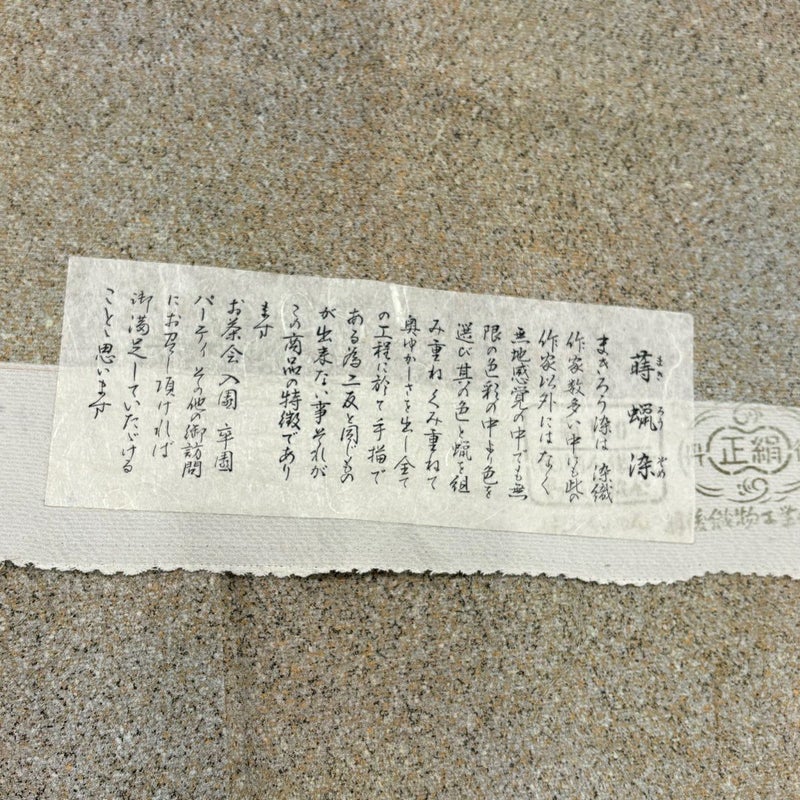 蒔蝋染
まき ろう ぞめ
まきろう染は 染織
作家数多い中でも此の
作家以外にはなく
無地感覚の中でも無
限の色彩の中より色を
選び其の色と蝋を組
み重ねくみ重ねて
奥ゆかしさを出し全て
の工程に於て手描で
ある為二反と同じもの
が出来ない事それが
この商品の特徴であり
ます
お茶会 入園 卒園
パーティ その他の御訪問
にお召し頂ければ
御満足していただける
ことと思います
正絹
織物工業